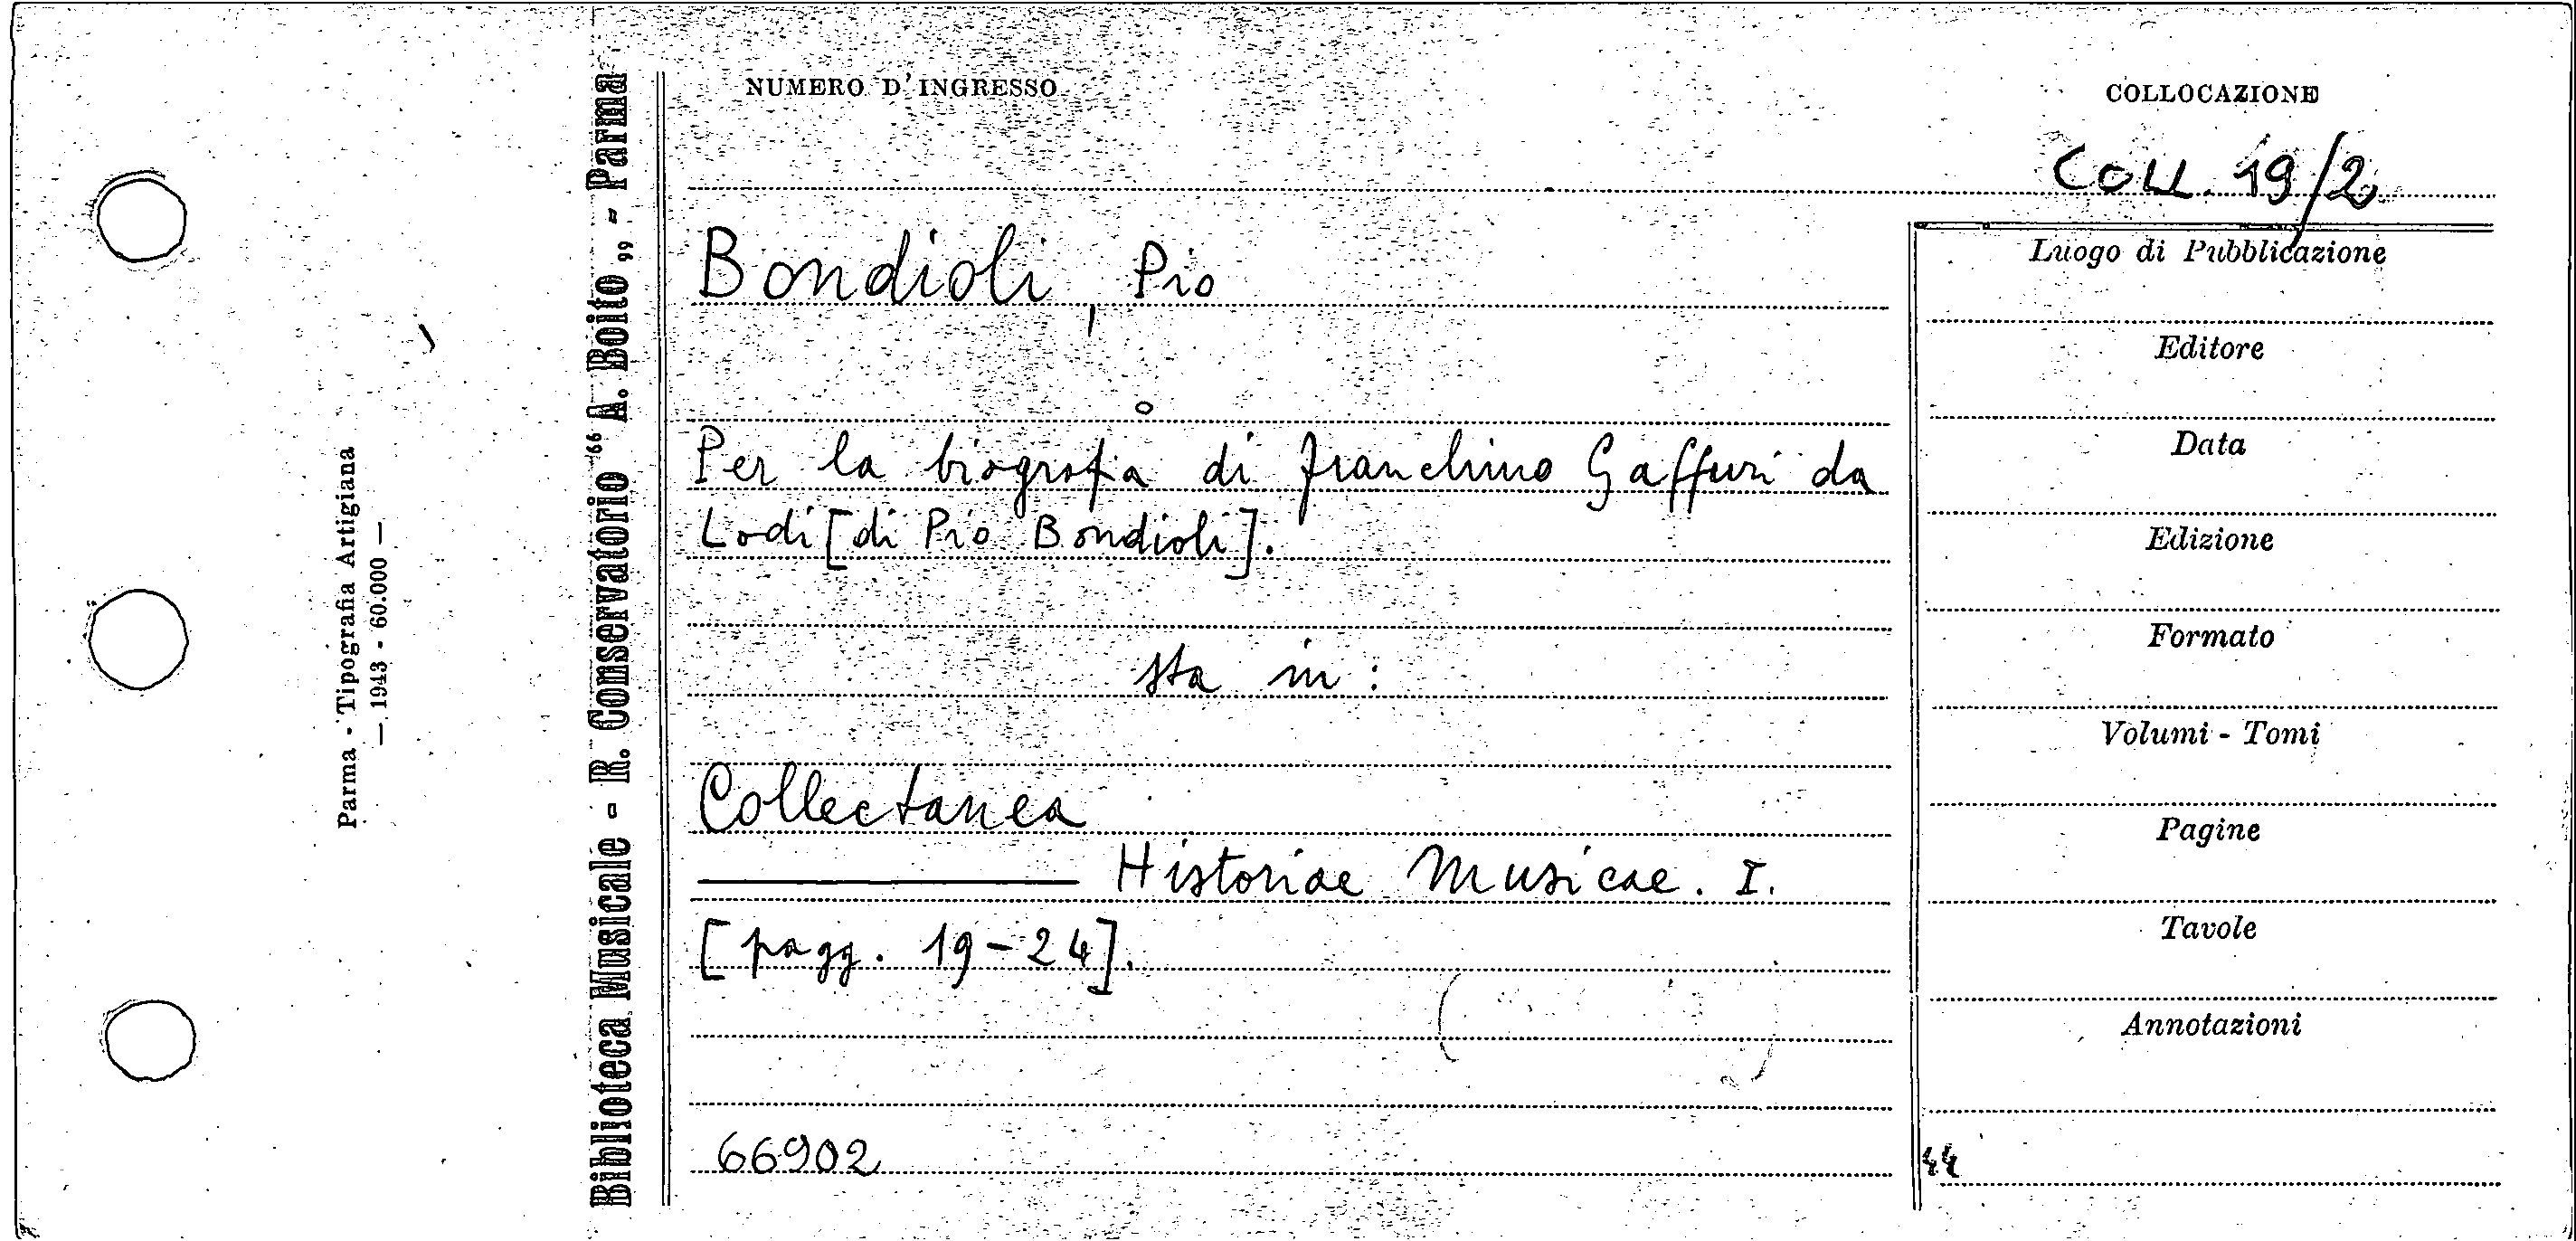 Parma - Tipografia Artigiana
— 1943 - 60.000 —
Biblioteca Musicale - R. Conservatorio “ A. Boito „ - Parma
NUMERO D'INGRESSO
COLLOCAZIONE
COLL. 19/2
Bondioli, Pio
Per la biografia di Franchino Gaffuri da
Lodi [di Pio Bondioli].
sta in:
Collectanea
Historiae Musicae. I.
[pagg. 19-24].
66902
Luogo di Pubblicazione
Editore
Data
Edizione
Formato
Volumi - Tomi
Pagine
Tavole
Annotazioni
44